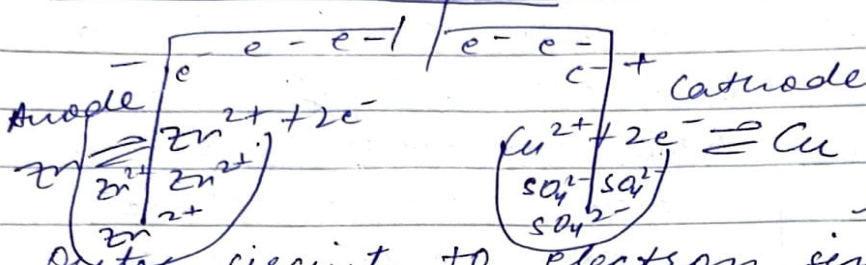 e⁻ e⁻ e⁻ e⁻ e⁻
− e⁻ e⁻ +
Anode Cathode
Zn ⇌ Zn²⁺ + 2e⁻ Cu²⁺ + 2e⁻ ⇌ Cu
Zn²⁺ Zn²⁺ SO₄²⁻ SO₄²⁻
Zn²⁺ SO₄²⁻
circuit to electron